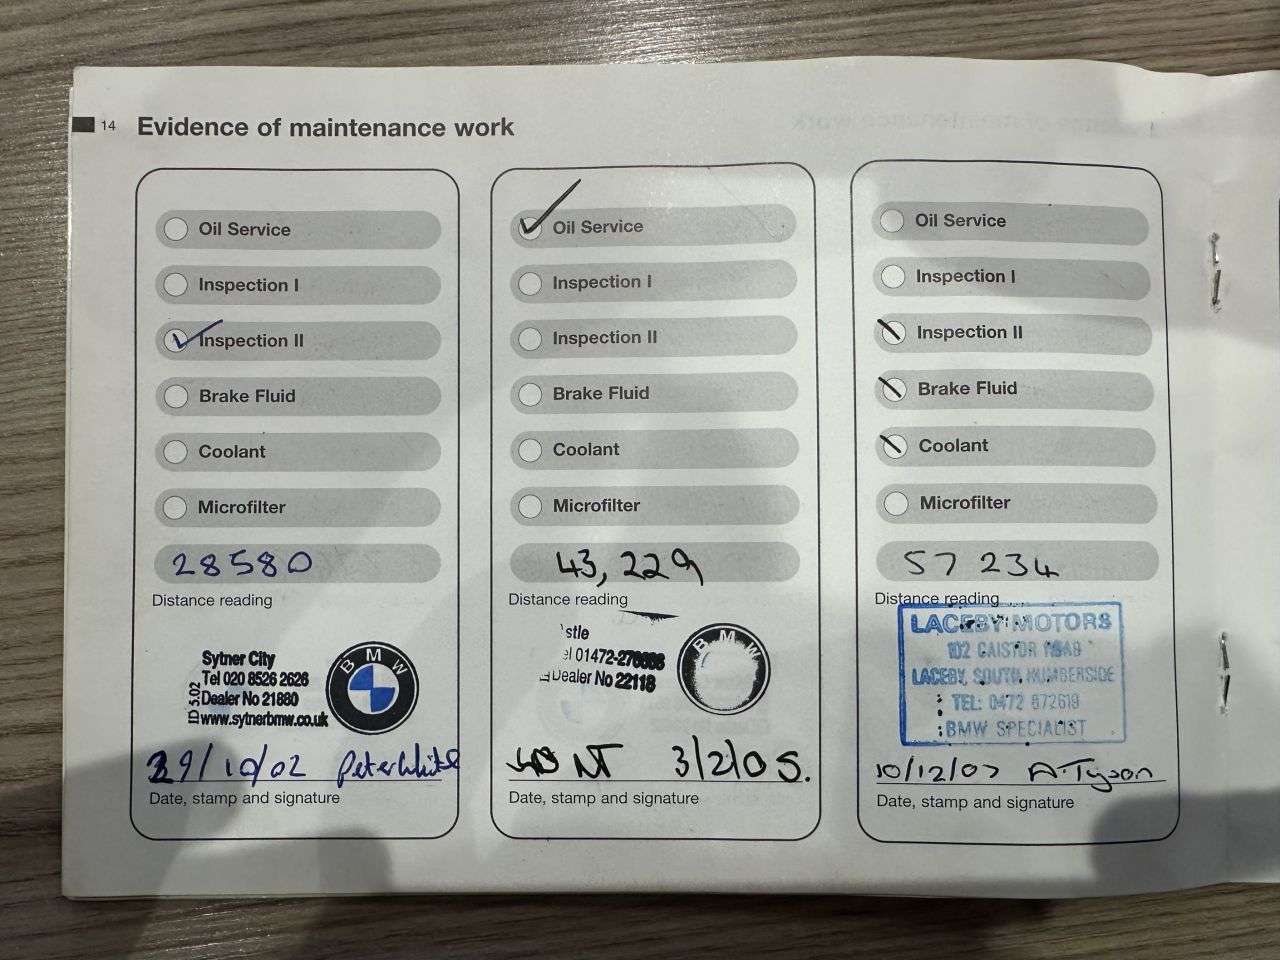 14 Evidence of maintenance work
Oil Service
Inspection I
Inspection II
Brake Fluid
Coolant
Microfilter
28580
Distance reading
Sytner City
Tel 020 8526 2626
Dealer No 21880
www.sytnerbmw.co.uk
ID 5.02
BMW
29/10/02 Peter White
Date, stamp and signature
Oil Service
Inspection I
Inspection II
Brake Fluid
Coolant
Microfilter
43,229
Distance reading
stle
el 01472-
Dealer No 22118
BMW
NT 3/2/05.
Date, stamp and signature
Oil Service
Inspection I
Inspection II
Brake Fluid
Coolant
Microfilter
57 234
Distance reading
LACEBY MOTORS
102 CAISTOR ROAD
LACEBY, SOUTH HUMBERSIDE
TEL: 0472 872619
BMW SPECIALIST
10/12/07 A.Tyson
Date, stamp and signature